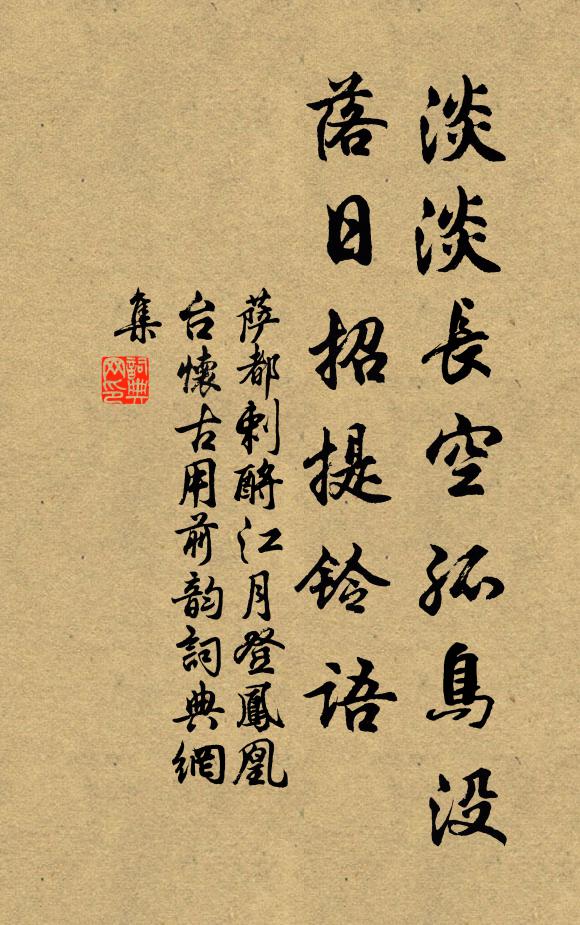 淡淡長空孤鳥没
落日招提鈴語
薩都刺酹江月登鳳凰
台懷古用前韵詞典網
集
詞典
网印